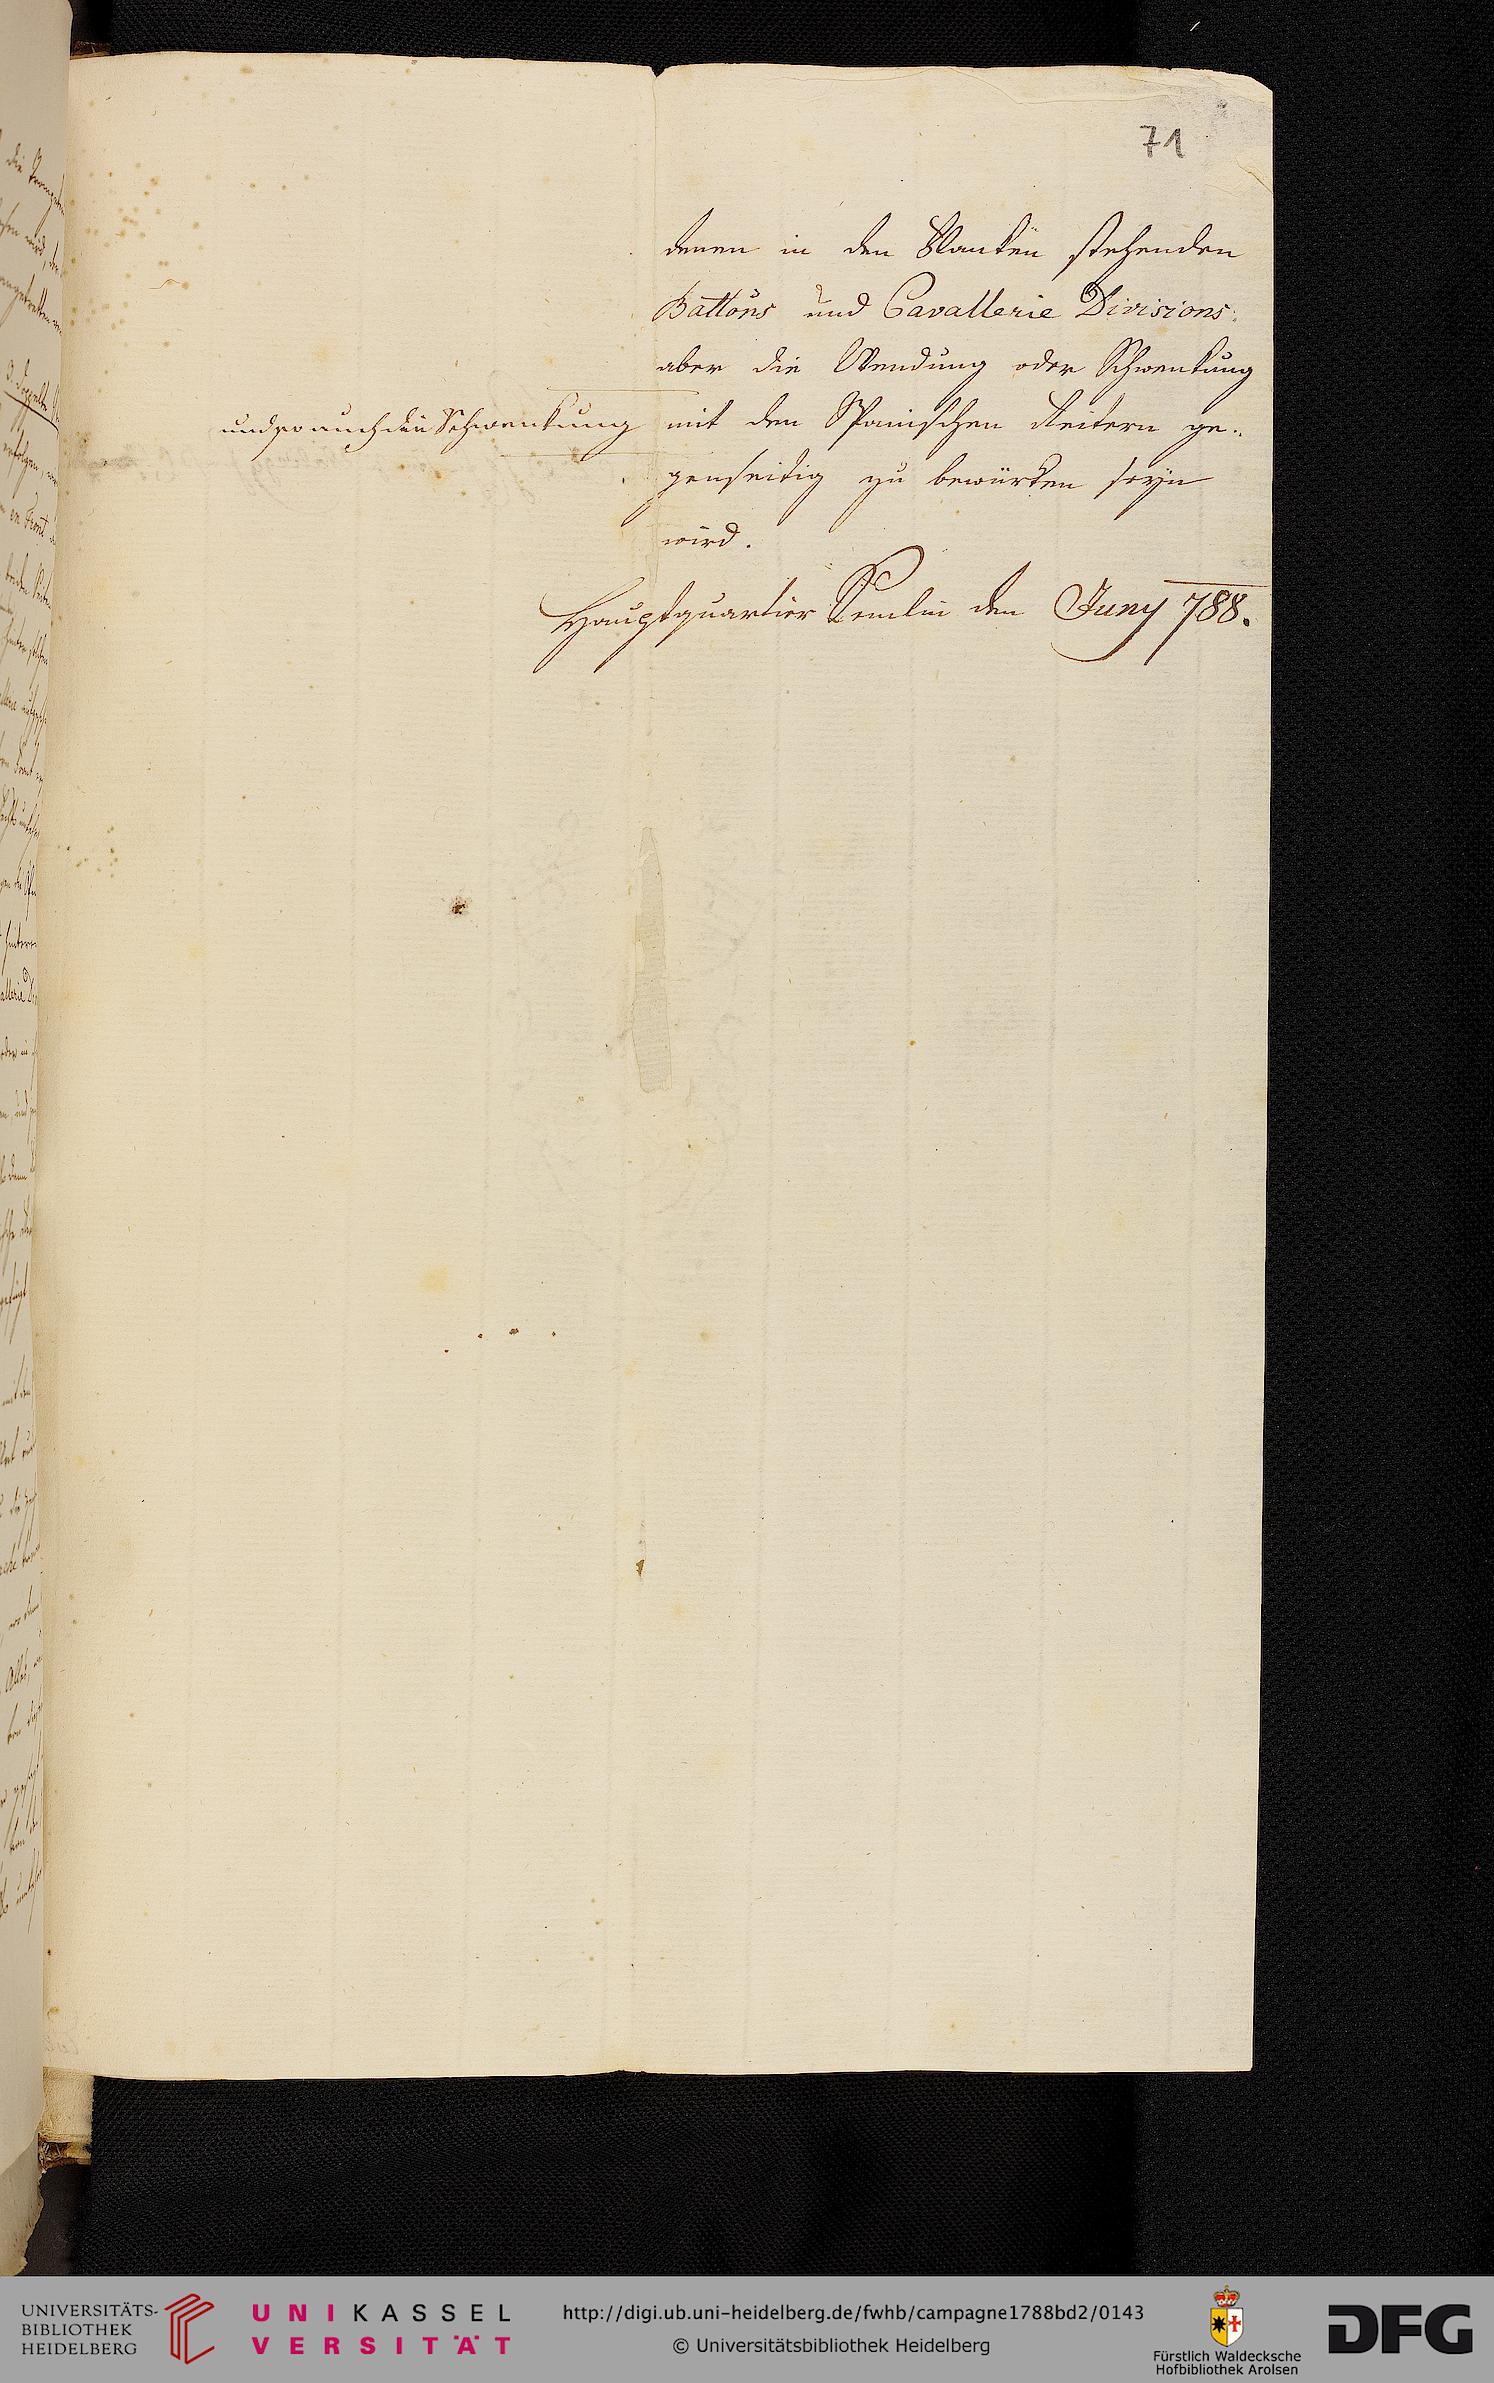 71
denen in den Flanken stehenden
Battons und Cavallerie Divisions
aber die Wendung oder Schwenkung
und so auch die Schwenkung
mit den Spanischen Reitern ge-
genseitig zu bewürken seyn
wird.
Hauptquartier Semlin den Juny 788.
UNIVERSITÄTS-
BIBLIOTHEK
HEIDELBERG
UNIKASSEL
VERSITÄT
http://digi.ub.uni-heidelberg.de/fwhb/campagne1788bd2/0143
© Universitätsbibliothek Heidelberg
Fürstlich Waldecksche
Hofbibliothek Arolsen
DFG